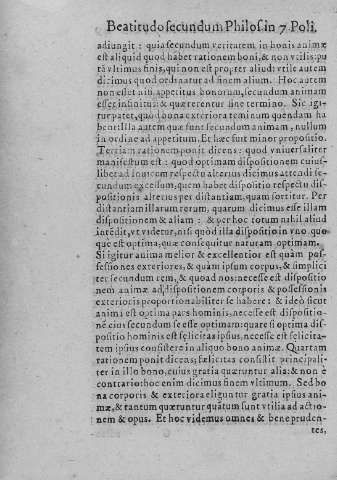 Beatitudo secundum Philos. in 7 Poli.
adiungit: quia secundum veritatem in bonis animæ
est aliquid quod habet rationem boni, & non vtilis: pu
tà vltimus finis, qui non est propter aliud: vtile autem
dicimus quod ordinatur ad finem alium. Hoc autem
non esset nisi appetitus bonorum, secundum animam
esset infinitus: & quærentur sine termino. Sic igi
tur patet, quod bona exteriora terminum quendam ha
bent: illa autem quæ sunt secundum animam, nullum
in ordine ad appetitum. Et hæc fuit minor propositio.
Tertiam rationem ponit dicens: quod vniuersaliter
manifestum est: quod optimam dispositionem cuius-
libet ad inuicem respectu alterius dicimus attendi se-
cundum excessum, quem habet dispositio respectu dis-
positionis alterius per distantiam, quam sortitur. Per
distantiam illarum rerum, quarum dicimus esse illam
dispositionem & aliam: & per hoc totum nihil aliud
intēdit, vt videtur, nisi quod illa dispositio in vno quo-
que est optima, quæ consequitur naturam optimam.
Si igitur anima melior & excellentior est quàm pos-
sessiones exteriores, & quàm ipsum corpus, & simplici
ter secundum rem, & quoad nos: necesse est dispositio
nem animæ ad dispositionem corporis & possessionis
exterioris proportionabiliter se habere: & ideò sicut
animi est optima pars hominis, necesse est dispositio-
nē eius secundum se esse optimam: quare si optima dis-
positio hominis est felicitas ipsius, necesse est felicita-
tem ipsius consistere in aliquo bono animæ. Quartam
rationem ponit dicens: fælicitas consistit principali-
ter in illo bono, cuius gratia quæruntur alia: & non è
contrario: hoc enim dicimus finem vltimum. Sed bo
na corporis & exteriora eliguntur gratia ipsius ani-
mæ, & tantum quæruntur quātum sunt vtilia ad actio-
nem & opus. Et hoc videmus omnes & bene pruden-
tes,